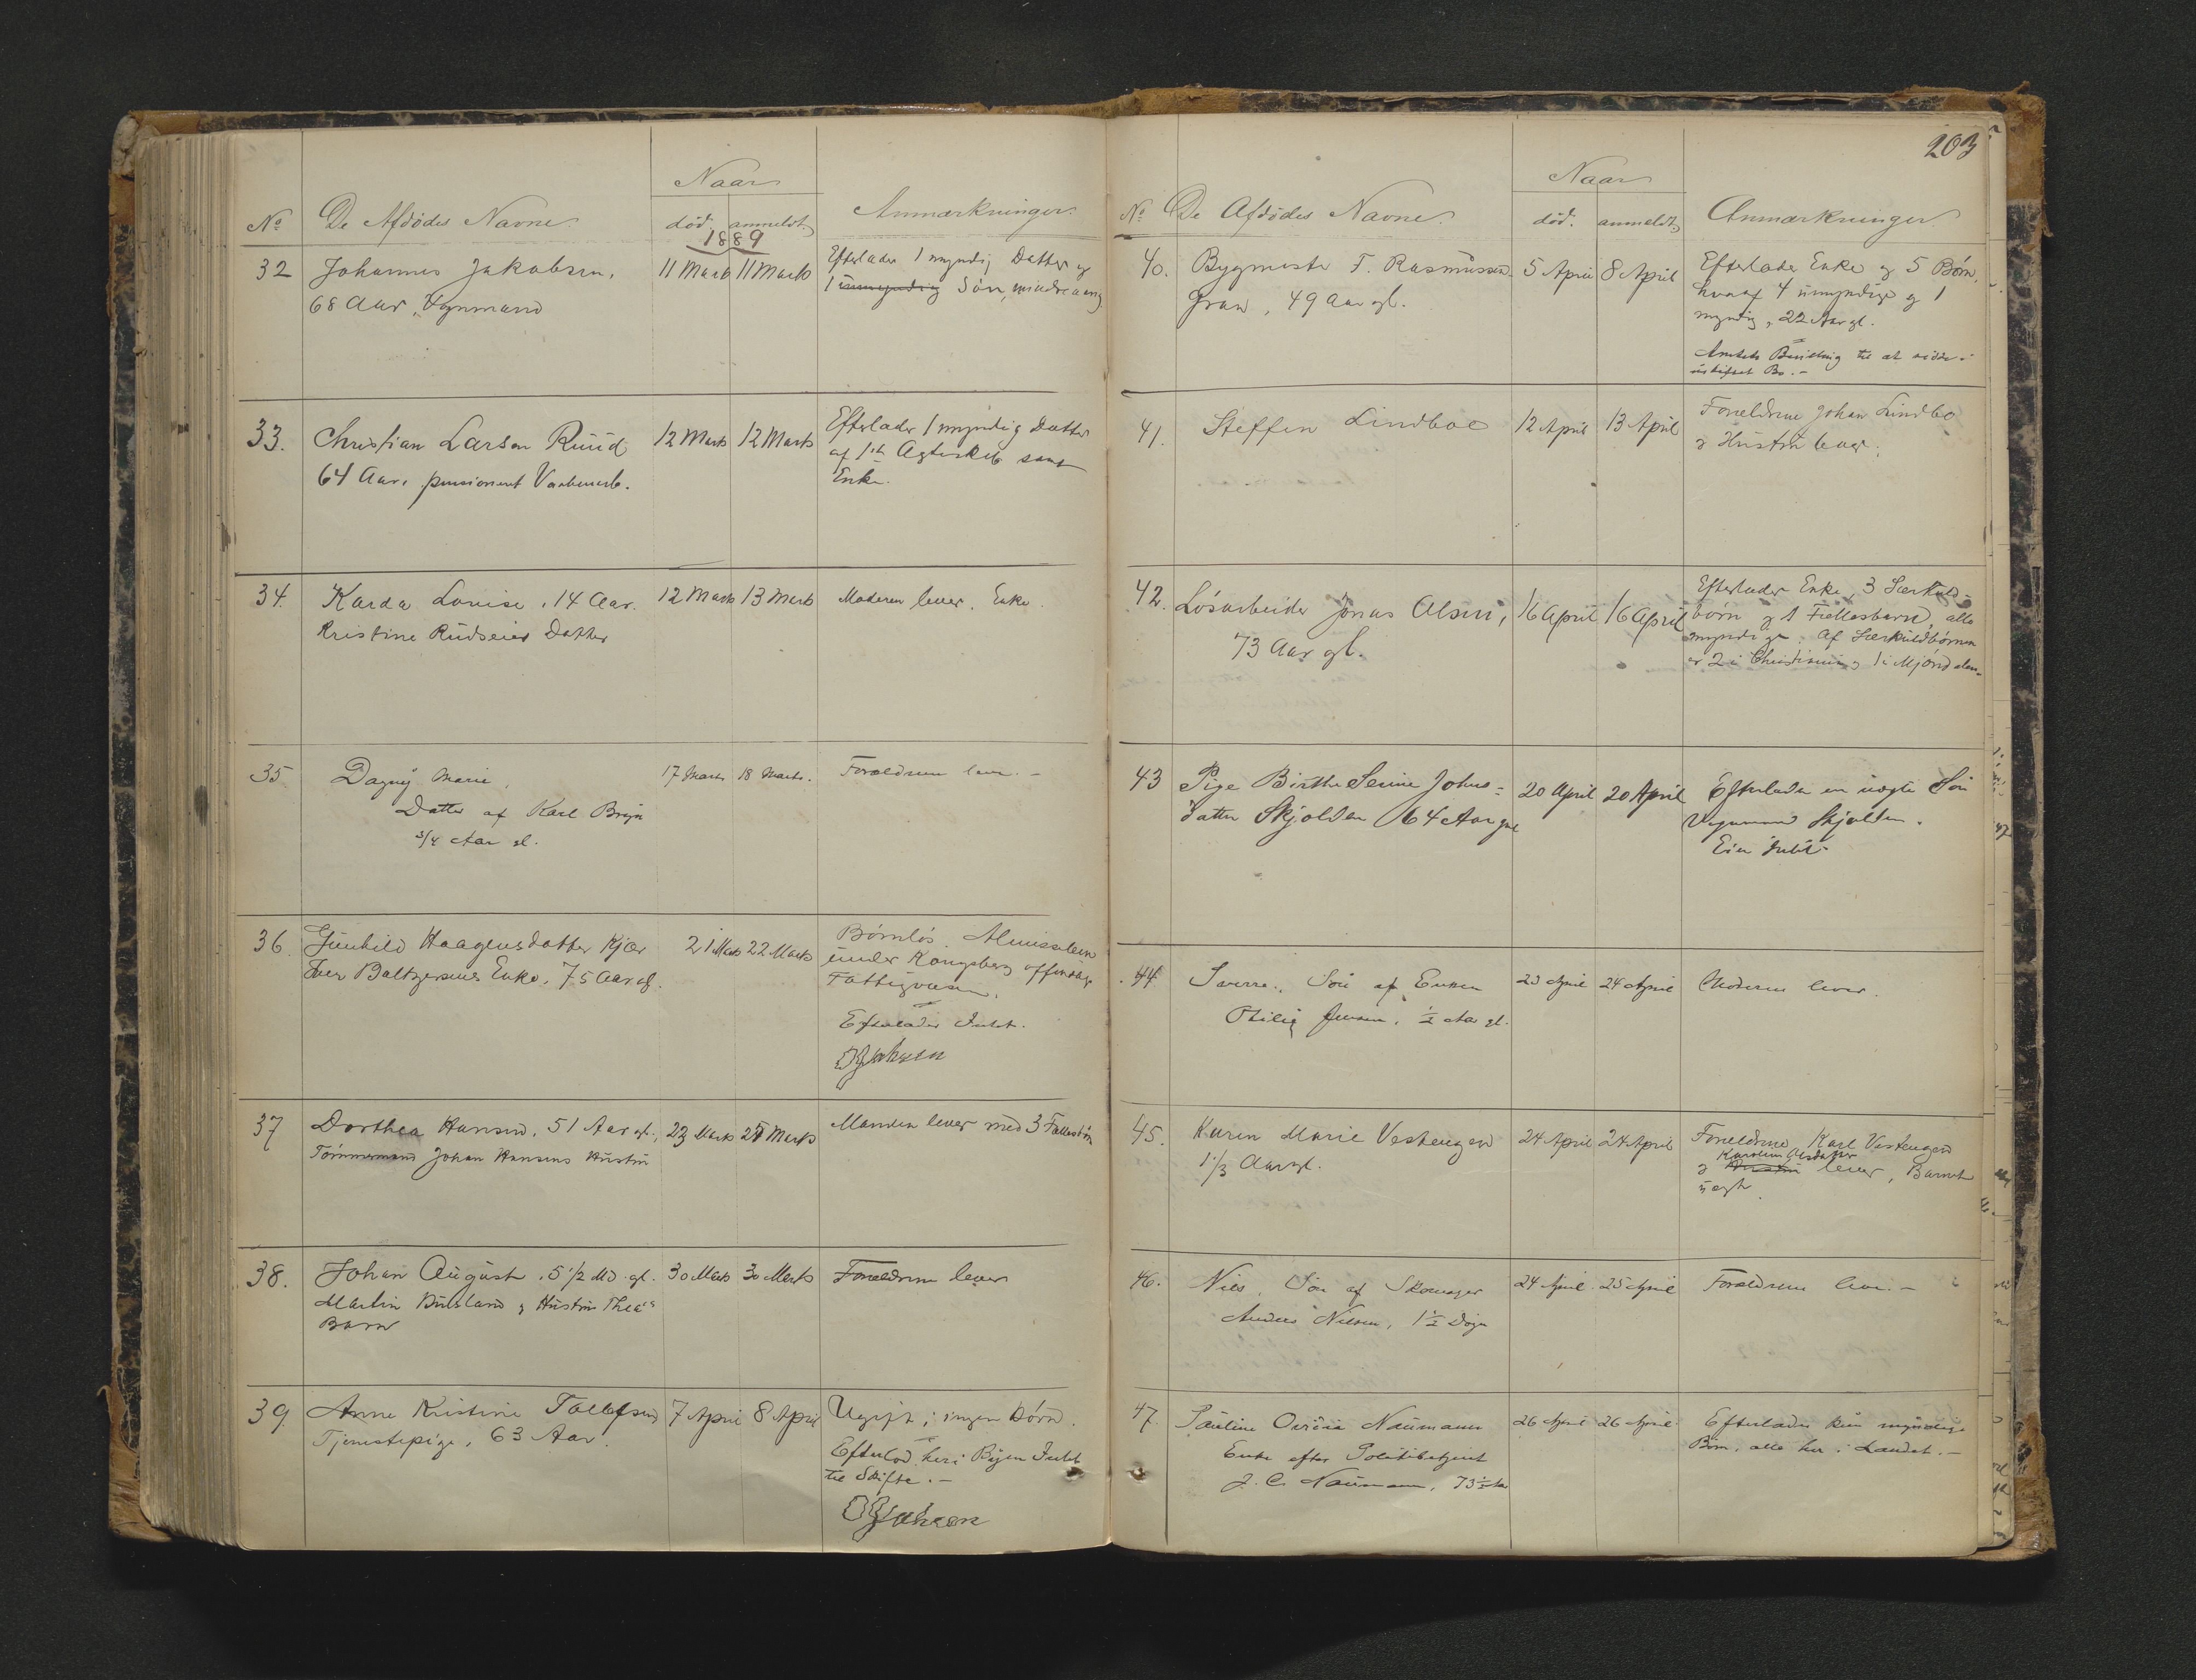 Naar
No De Afdödes Navne. död. anmeldt. Anmærkninger.
1889
32 Johannes Jakobsen, 11 Marts 11 Marts Efterlader 1 myndig Datter og
68 Aar, 1 umyndig Søn, mindreaarig
33. Christian Larsen Ruud 12 Marts 12 Marts Efterlader 1 myndig Datter
64 Aar. pensioneret af 1st Ægteskab samt
Enke.
34. Karda Louise, 14 Aar. 12 Marts 13 Marts Moderen lever. Enke.
Kristine Rudseies Datter
35 Dagny Marie, 17 Marts 18 Marts. Forældrene lever. –
Datter af Karl Bryn
3/4 Aar gl.
36. Gunhild Haagensdatter Kjær 21 Marts 22 Marts Børnløs. Almisselem
Iver Baltzersens Enke, 75 Aar gl. under Kongsberg offentlige
Fattigvæsen.
Efterlader Intet.
37 Dorthea Hansen, 51 Aar gl., 23 Marts 25 Marts Manden lever med 3 Fællesbørn
Tømmermand Johan Hansens Hustru
38. Johan August, 5 1/2 Md. gl. 30 Marts 30 Marts Forældrene lever
Martin og Hustru Thea's
Barn
39 Anne Kristine Tollefsen 7 April 8 April Ugift, ingen Børn.
Tjenestepige, 63 Aar. Efterlod her i Byen Intet
til Skifte. –
203
Naar
No De Afdödes Navne. död. anmeldt. Anmærkninger
40. Bygmester F. Rasmussen 5 April 8 April Efterlader Enke og 5 Børn,
Gran, 49 Aar gl. hvoraf 4 umyndige og 1
myndig, 22 Aar gl.
Amtets Bevilling til at sidde i
uskiftet Bo. –
41. Steffen Lindboe 12 April 13 April Forældrene Johan Lindbo
og Hustru lever.
42. Løsarbeider Jonas Olsen, 16 April 16 April Efterlader Enke, 3 Særkuld-
73 Aar gl. børn og 1 Fællesbarn, alle
myndige. Af Særkuldbørnene
er 2 i Christiania og 1 i Mjøndalen.
43 Pige Birthe Serine Johns= 20 April 20 April Efterlader en uægte Søn
datter Skjolden 64 Aar gl Skjolden.
Eier Intet.
44. Sverre, Søn af Enken 23 April 24 April Moderen lever.
Jensen, 1/2 Aar gl.
45. Karen Marie Vestengen 24 April 24 April Forældrene Karl Vestengen
1 1/3 Aar gl. Karoline Olsdatter
og Hustru lever, Barnet
uægte.
46. Nils, Søn af Skomager 24 April 25 April Forældrene lever. –
Anders Nilsen, 1 1/2 Døgn
47. Pauline Naumann 26 April 26 April Efterlader kun myndige
Enke efter Politibetjent Børn, alle her i Landet. –
J. C. Naumann, 73 1/2 Aar